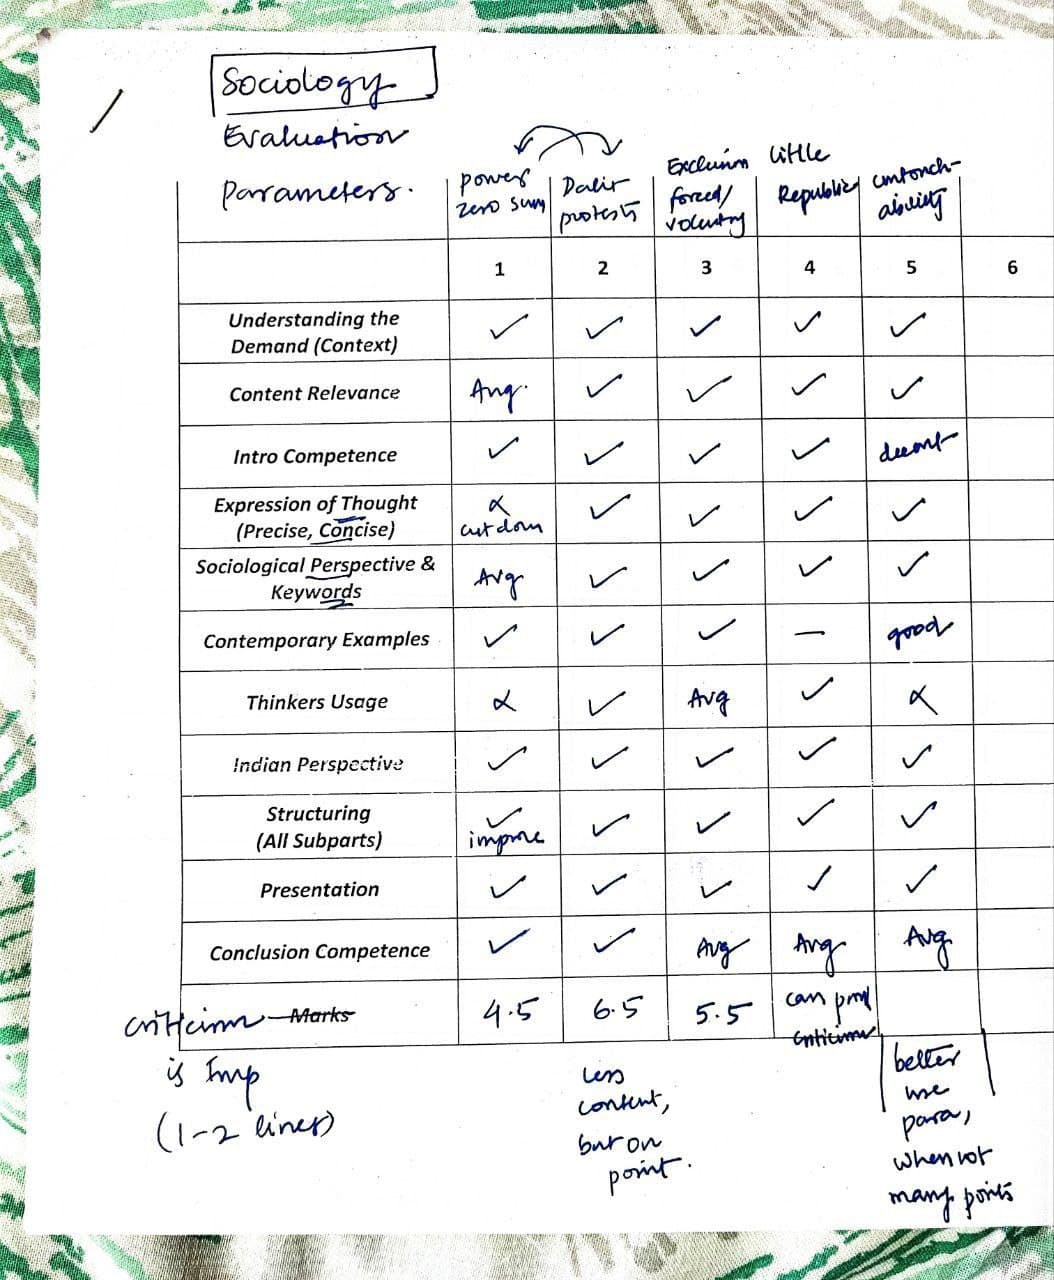 Sociology
Evaluation
Parameters.
power zero sum
Dalit protests
Exclusion forced/ voluntary
little Republic
untouch-ability
1 2 3 4 5 6
Understanding the Demand (Context) ✓ ✓ ✓ ✓ ✓
Content Relevance Avg. ✓ ✓ ✓ ✓
Intro Competence ✓ ✓ ✓ ✓ decent
Expression of Thought (Precise, Concise) x cut down ✓ ✓ ✓ ✓
Sociological Perspective & Keywords Avg ✓ ✓ ✓ ✓
Contemporary Examples ✓ ✓ ✓ – good
Thinkers Usage x ✓ Avg ✓ x
Indian Perspective ✓ ✓ ✓ ✓ ✓
Structuring (All Subparts) ✓ improve ✓ ✓ ✓ ✓
Presentation ✓ ✓ ✓ ✓ ✓
Conclusion Competence ✓ ✓ Avg Avg Avg
Marks 4.5 6.5 5.5 can criticism
criticism
is Imp
(1-2 lines)
less
content,
but on
point.
better
use
para,
when not
many points